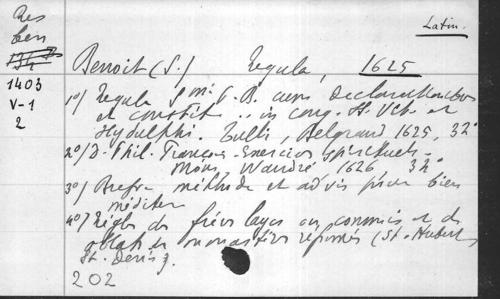 Res
ben
Latin.
1403
V-1
2
Benoit (S.) Regula, 1625
1°/ Regula S mi P. B. cum Declarationibus
et constit... in cong. SS. Vit. et
Hydulphi. Tulli, Belgrand 1625, 32°
2°/ D. Phil. François. Exercices spirituels.
Mons, Waudré 1626 32°
3°/ Brefve méthode et advis pour bien
méditer
4°/ Règles des frères layes ou commis et des
oblats en monastères réformés (St. Hubert,
St. Denis).
202